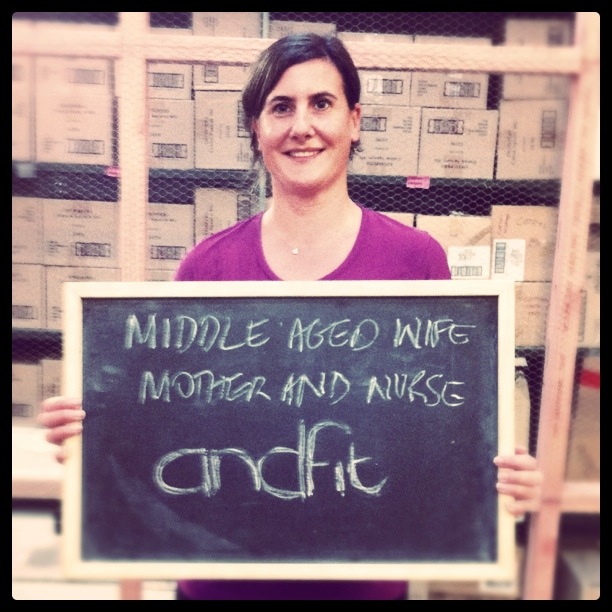 MIDDLE AGED WIFE
MOTHER AND NURSE
andfit